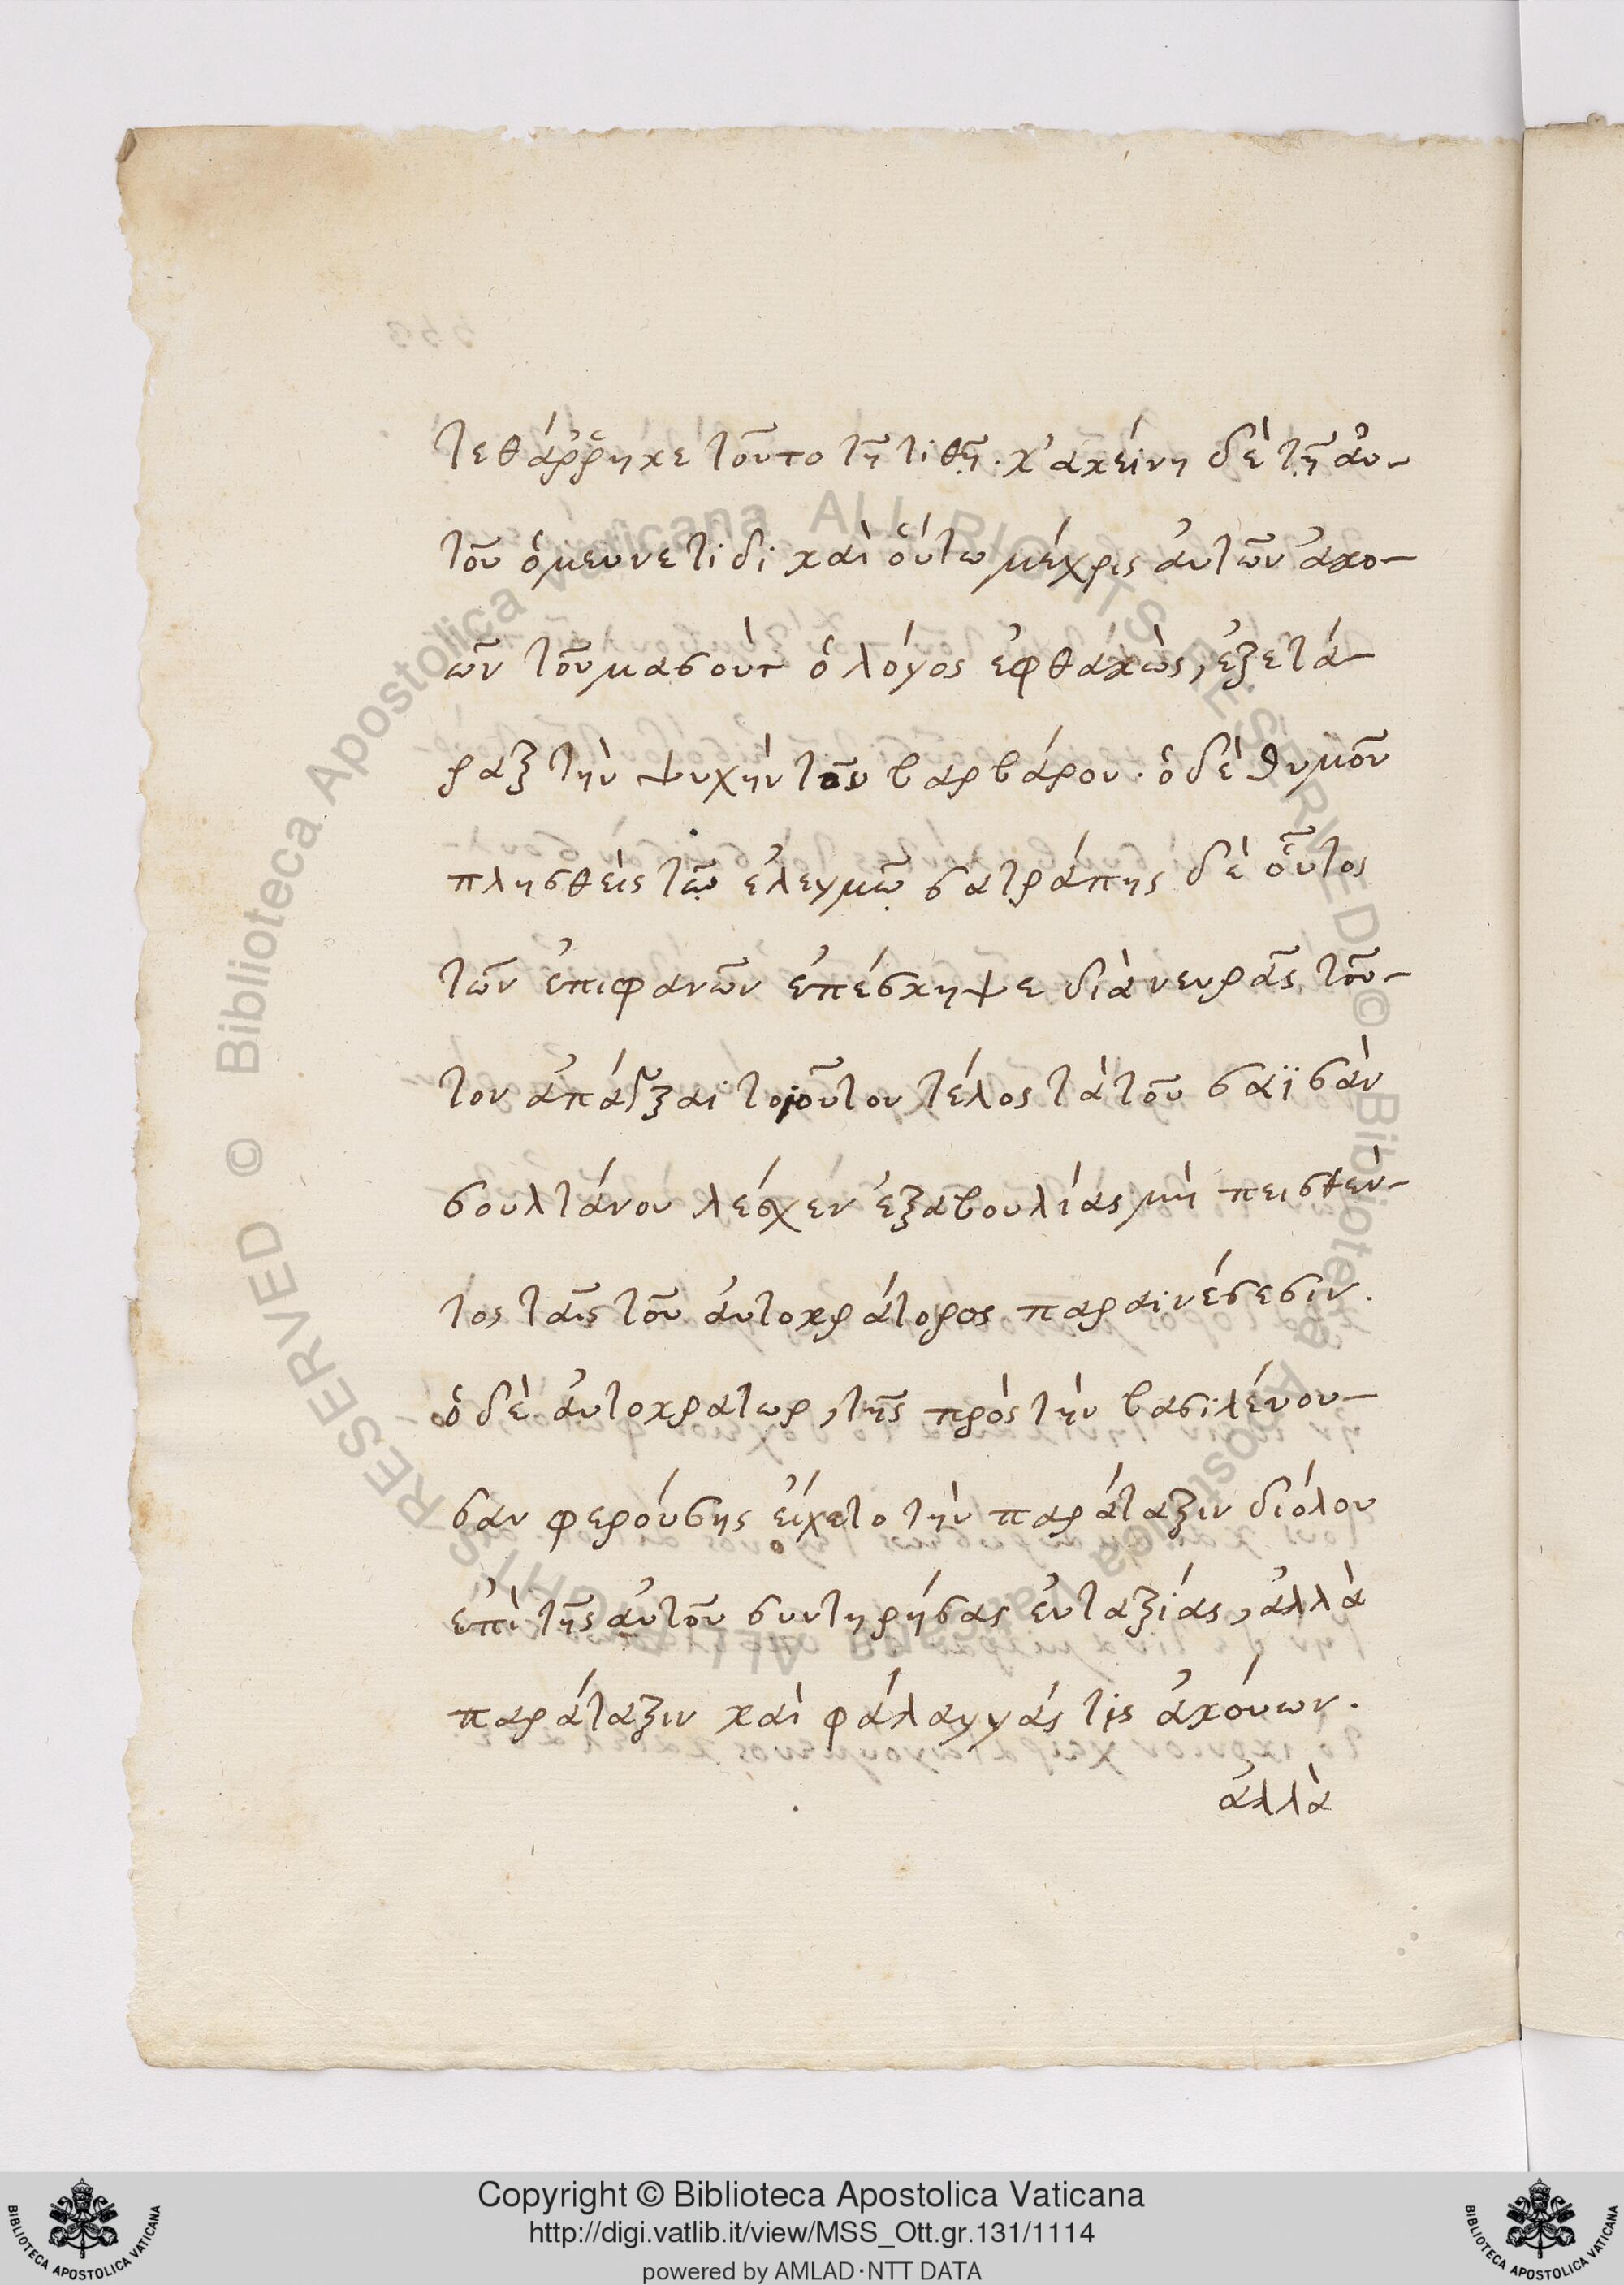 τεθάῤῥηκε τοῦτο τῆ τιθῆ· κ᾽ακείνη δὲ τῆ ἀυ-
τοῦ ὁμευνετίδι καὶ ὅυτω μέχρις ἀυτῶν ἀκο-
ῶν τοῦ μασοὺτ ὁ λόγος ἐφθακὼς, ἐξετά-
ραξ τὴν ψυχὴν τοῦ βαρβάρου· ὁ δὲ θυμοῦ
πλησθεὶς τῶ ἐλεγμῶ σατράπης δὲ οὗτος
τῶν ἐπιφανῶν ἐπέσκηψε διὰ νευρᾶς τοῦ-
τον ἀπάγξαι τοιοῦτον τέλος τὰ τοῦ σαϊσὰν
σουλτάνου λέσχεν ἐξ αβουλίας μὴ πεισθέν-
τος ταῖς τοῦ ἀυτοκράτορος παραινέσεσιν.
ὁ δὲ ἀυτοκρατωρ, τῆς πρὸς τὴν βασιλέυου-
σαν φερόυσης ἐίχετο τὴν παράταξιν διόλου
ἐπὶ τῆς ἀυτοῦ συντηρήσας ἐυταξίας, ἀλλὰ
παράταξιν καὶ φάλαγγάς τις ἀκόυων.
ἀλλὰ
Copyright © Biblioteca Apostolica Vaticana
http://digi.vatlib.it/view/MSS_Ott.gr.131/1114
powered by AMLAD·NTT DATA
© Biblioteca Apostolica Vaticana ALL RIGHTS RESERVED
© Biblioteca Apostolica Vaticana ALL RIGHTS RESERVED
BIBLIOTECA APOSTOLICA VATICANA
BIBLIOTECA APOSTOLICA VATICANA